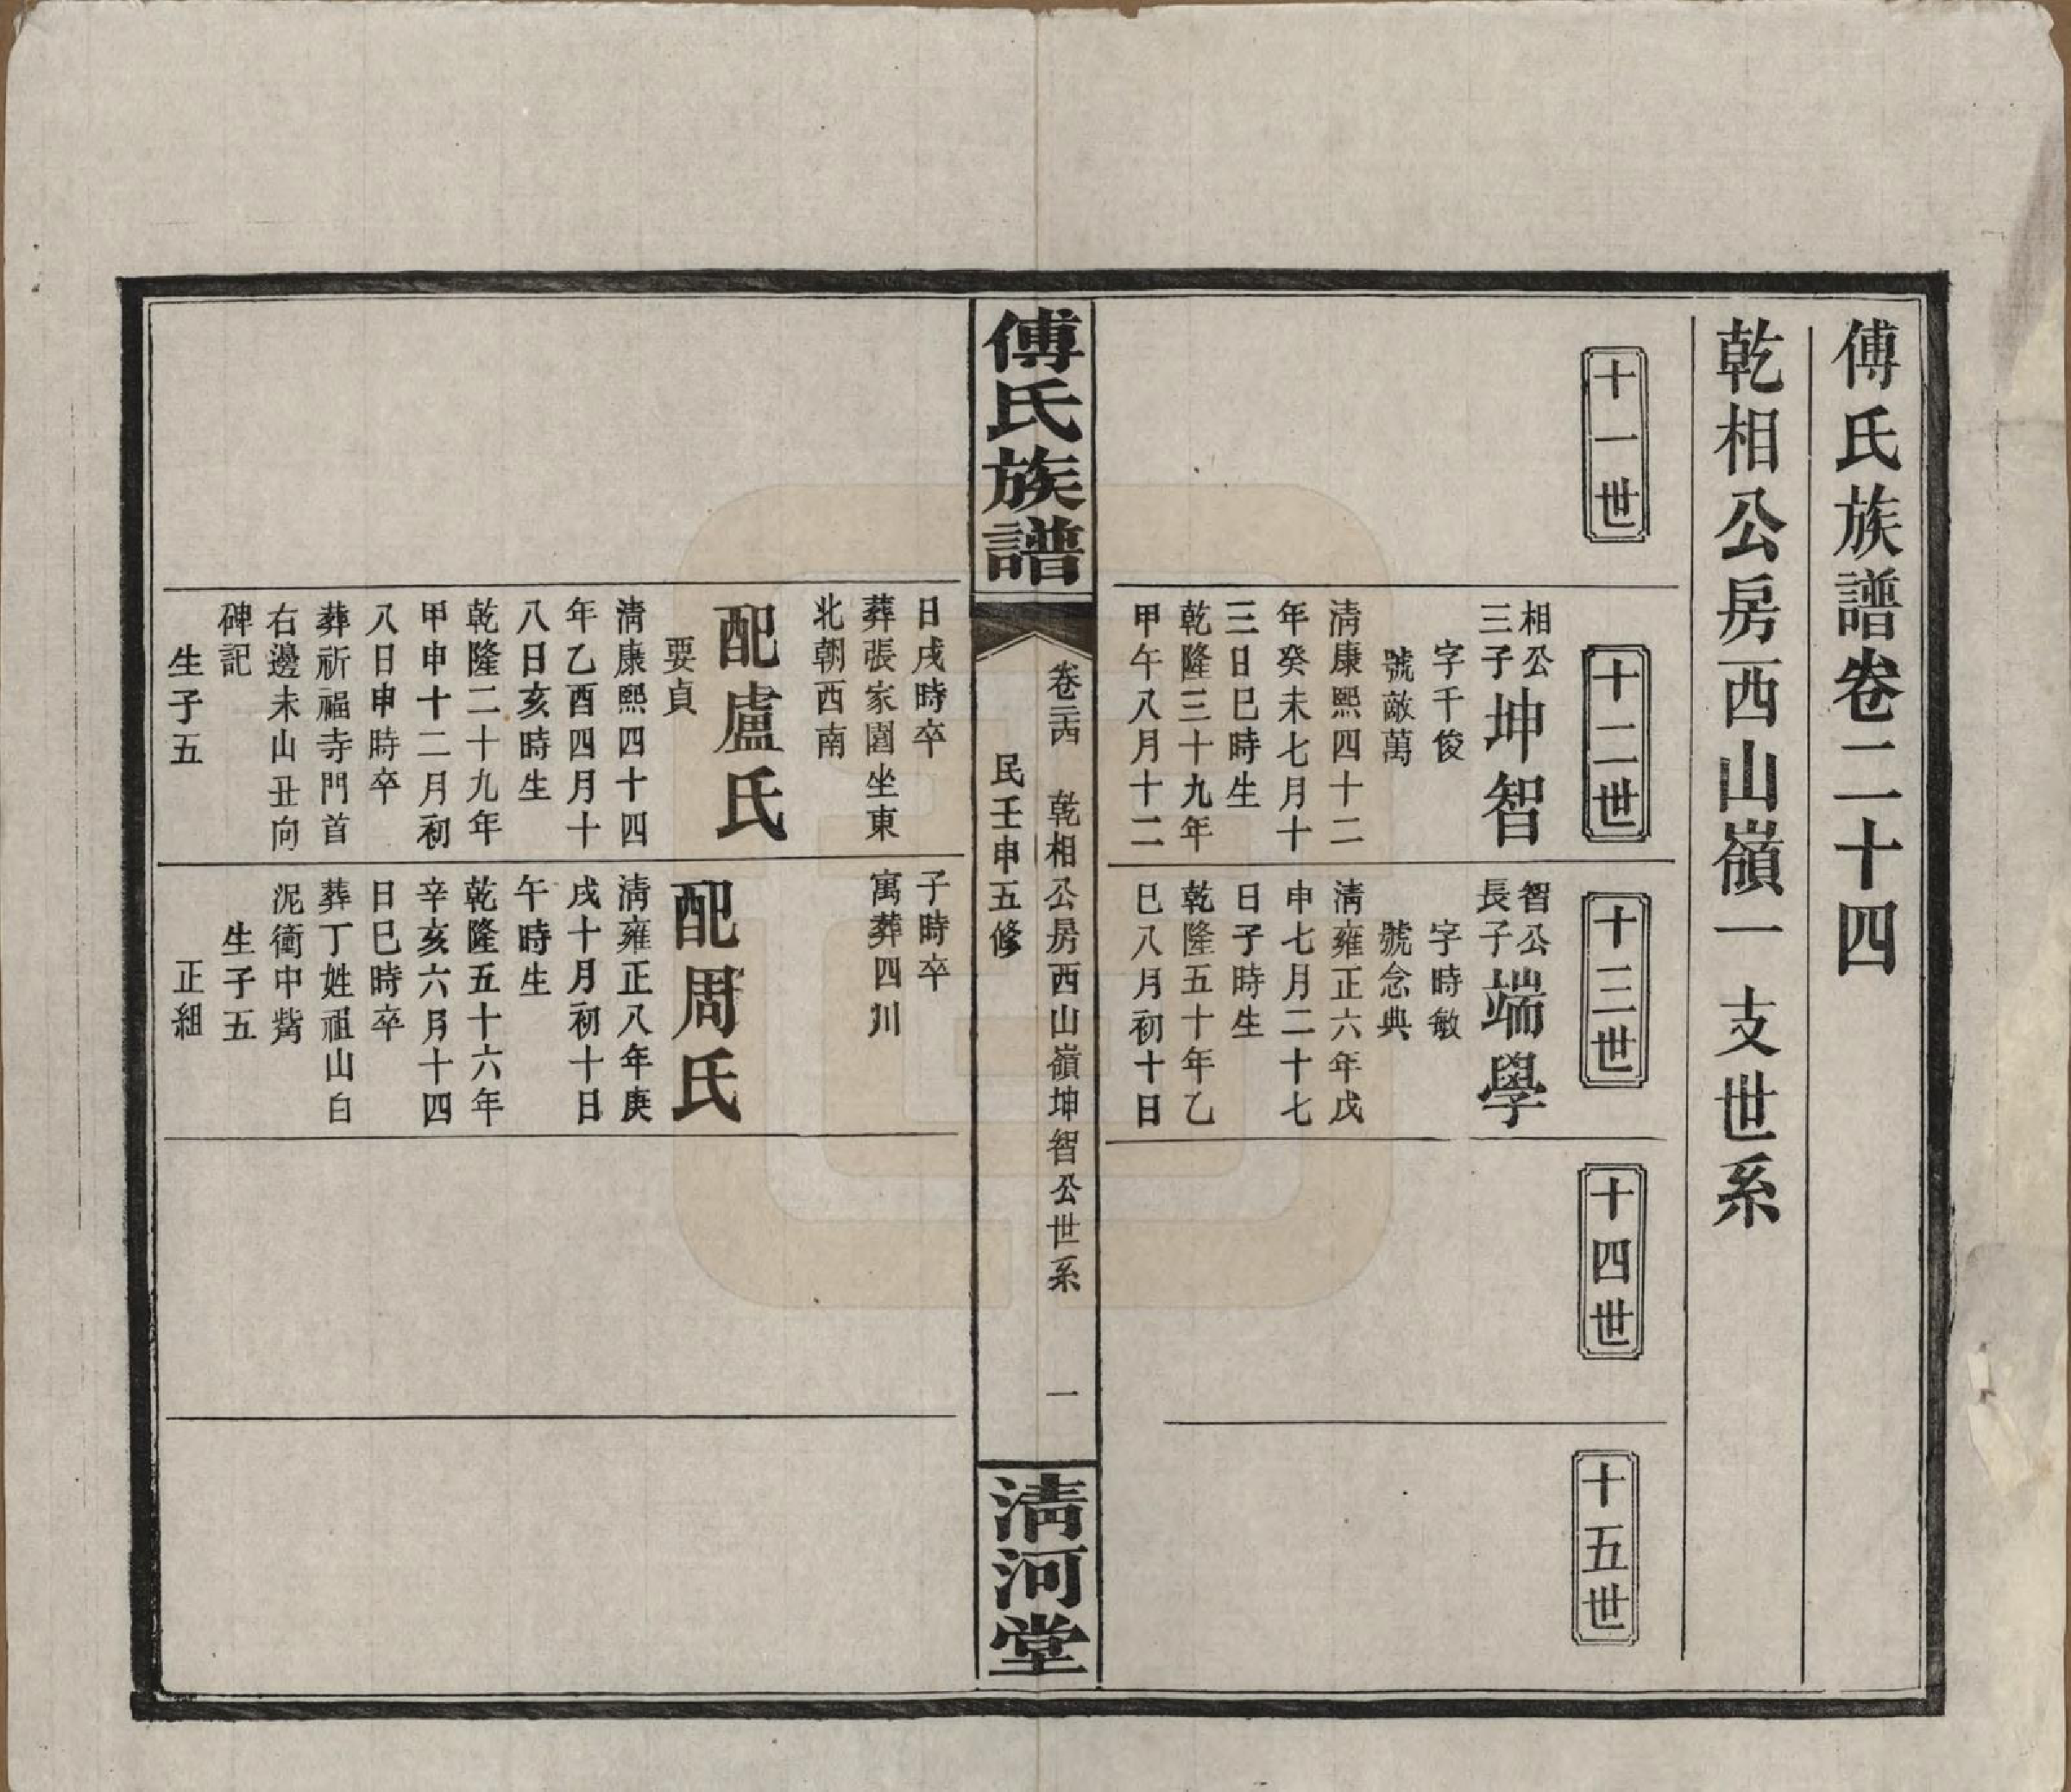 傅氏族譜卷二十四
乾相公房西山嶺一支世系
十一世
十二世
十三世
十四世
十五世
相公
三子
坤智
字千俊
號敵萬
淸康熙四十二
年癸未七月十
三日巳時生
乾隆三十九年
甲午八月十二
智公
長子
端學
字時敏
號念典
淸雍正六年戊
申七月二十七
日子時生
乾隆五十年乙
巳八月初十日
傅氏族譜
卷二十四
乾相公房西山嶺坤智公世系
一
民壬申五修
淸河堂
日戌時卒
葬張家園坐東
北朝西南
配盧氏
要貞
淸康熙四十四
年乙酉四月十
八日亥時生
乾隆二十九年
甲申十二月初
八日申時卒
葬祈福寺門首
右邊未山丑向
碑記
生子五
子時卒
寓葬四川
配周氏
淸雍正八年庚
戌十月初十日
午時生
乾隆五十六年
辛亥六月十四
日巳時卒
葬丁姓祖山白
泥衝中嘴
生子五
正組